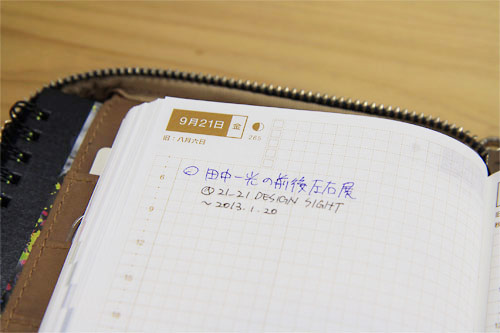 9月21日 金
265
旧:八月六日
田中一光の前後左右展
21_21 DESIGN SIGHT
~2013.1.20
6
9
12